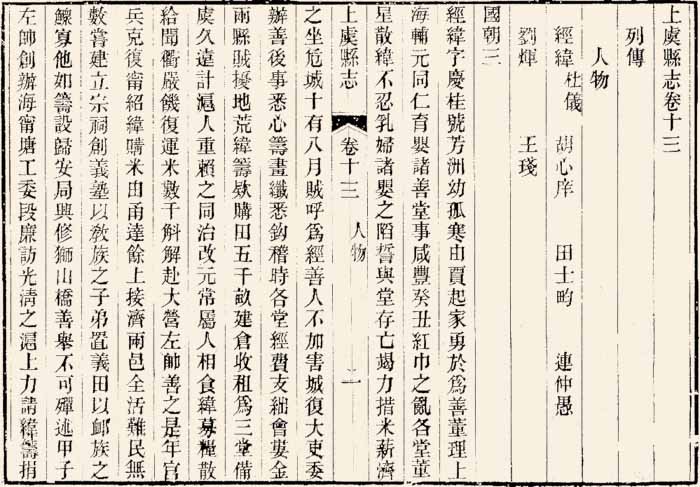 上虞縣志卷十三
列傳
人物
經緯 杜儀 胡心庠 田士昀 連仲愚
劉煇 王琖
國朝三
經緯字慶桂號芳洲幼孤寒由賈起家勇於爲善董理上
海輔元同仁育嬰諸善堂事咸豐癸丑紅巾之亂各堂董
星散緯不忍乳婦諸嬰之陷誓與堂存亡竭力措米薪濟
上虞縣志 卷十三 人物 一
之坐危城十有八月賊呼爲經善人不加害城復大吏委
辦善後事悉心籌畫纖悉鉤稽時各堂經費支絀會婁金
兩縣賊擾地荒緯籌欵購田五千畝建倉收租爲三堂備
虞久遠計滬人重賴之同治改元常屬人相食緯募糧散
給聞衢嚴饑復運米數千斛解赴大營左帥善之是年官
兵克復甯紹緯購米由甬達餘上接濟兩邑全活難民無
數嘗建立宗祠創義塾以敎族之子弟置義田以卹族之
鰥寡他如籌設歸安局興修獅山橋善舉不可殫述甲子
左帥創辦海甯塘工委段廉訪光淸之滬上力請緯籌捐